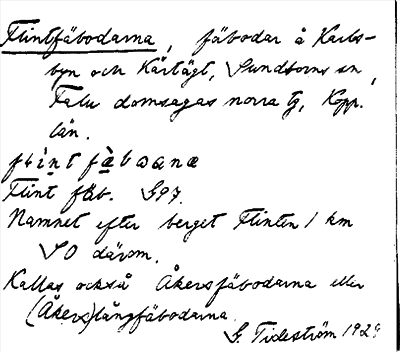 Flintfäbodarna, fäbodar å Karls-
byn och Kårtägt, Sundborns sn,
Falu domsagas norra tg, Kopp.
län.
Flint fäb. S97.
Namnet efter berget Flinten 1 km
SO därom.
Kallas också Åkersfäbodarna eller
(Åkers)långfäbodarna.
G. Tideström 1929